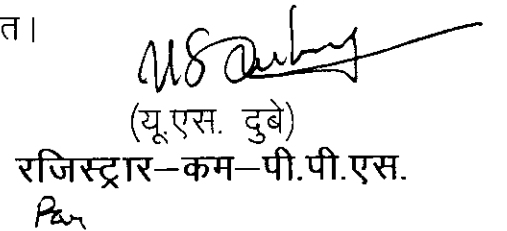 त।
(यू.एस. दुबे)
रजिस्ट्रार–कम–पी.पी.एस.